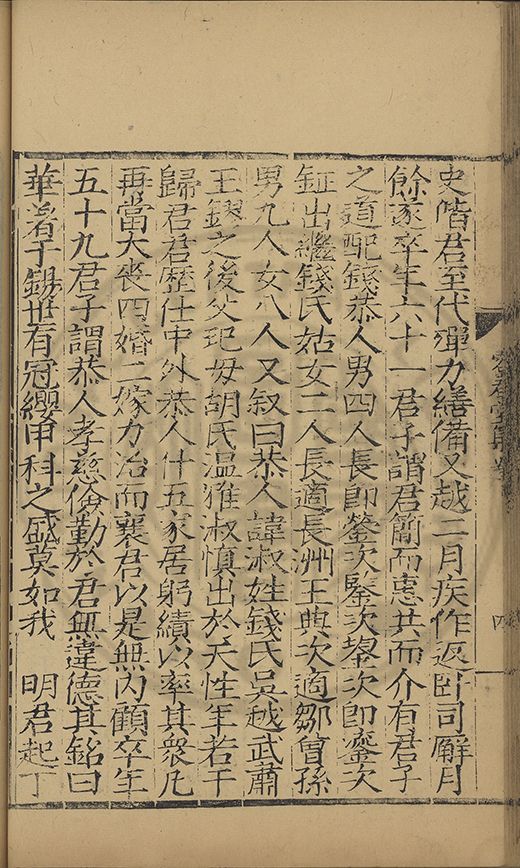 史階君至代殫力繕備又越二月疾作返卧司廨月
餘遂卒年六十一君子謂君簡而惠共而介有君子
之道配錢恭人男四人長即鎣次鋻次鍙次即鏊次
鉦出繼錢氏姑女二人長適長洲王典次適鄒曾孫
男九人女八人又叙曰恭人諱淑姓錢氏吳越武肅
王鏐之後父玘毋胡氏温雅淑慎出於天性年若干
歸君君歴仕中外恭人什五家居躬績以率其衆凡
再當大喪四婚二嫁力治而襄君以是無内顧卒年
五十九君子謂恭人孝慈儉勤於君無違德其銘曰
華着于錫世有冠纓甲科之盛莫如我 明君起丁
四